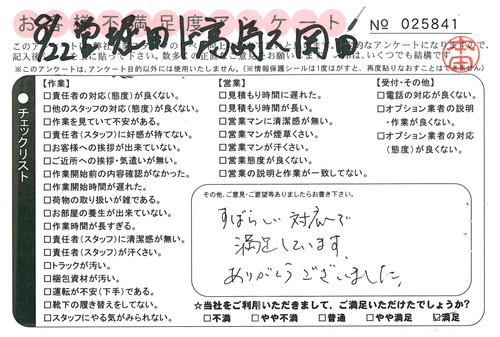 お客様不満足度アンケート
No 025841
8/22
※このアンケートは、アンケート目的以外には使用いたしません。(※情報保護シールは1度はがすと、再度貼りなおすことはできません)
チェックリスト
【作業】
□責任者の対応(態度)が良くない。
□他のスタッフの対応(態度)が良くない。
□作業を見ていて不安がある。
□責任者(スタッフ)に好感が持てない。
□お客様への挨拶が出来ていない。
□ご近所への挨拶・気遣いが無い。
□作業開始前の内容確認がなかった。
□作業開始時間が遅れた。
□荷物の取り扱いが雑である。
□お部屋の養生が出来ていない。
□作業時間が長すぎる。
□責任者(スタッフ)に清潔感が無い。
□責任者(スタッフ)が汗くさい。
□トラックが汚い。
□梱包資材が汚い。
□運転が不安(下手)である。
□靴下の履き替えをしてない。
□スタッフにやる気がみられない。
【営業】
□見積もり時間に遅れた。
□見積もり時間が長い。
□営業マンに清潔感が無い。
□営業マンが煙草くさい。
□営業マンが汗くさい。
□営業態度が良くない。
□営業の説明と作業が一致してない。
【受付・その他】
□電話の対応が良くない。
□オプション業者の説明
・作業が良くない。
□オプション業者の対応
(態度)が良くない。
その他、ご意見・ご要望等ありましたらお書き下さい。
すばらしい対応で
満足しています。
ありがとうございました。
☆当社をご利用いただきまして、ご満足いただけたでしょうか?
□不満 □やや不満 □普通 □やや満足 ☑満足